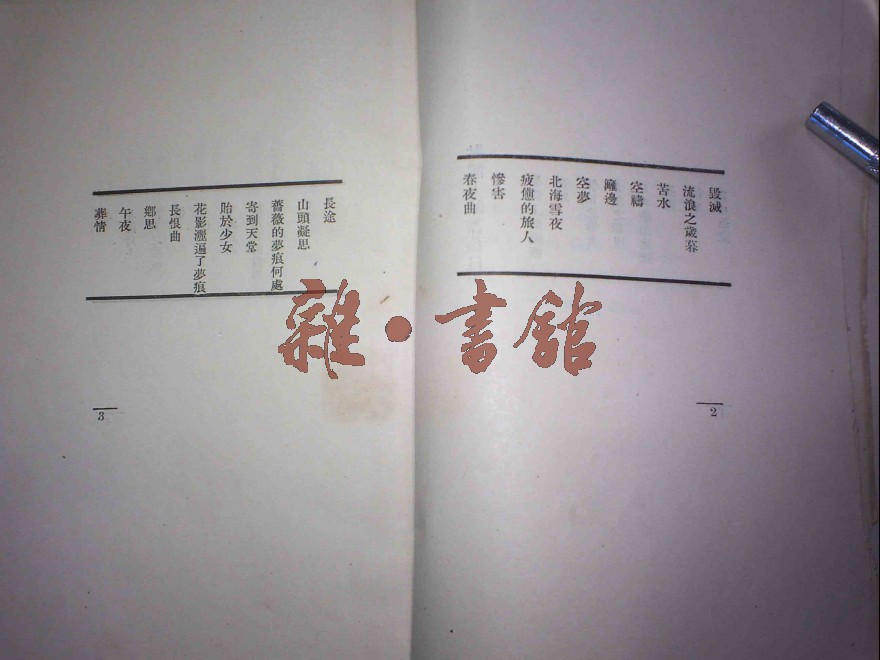 毀滅
流浪之歲暮
苦水
空禱
籬邊
空夢
北海雪夜
疲憊的旅人
慘害
春夜曲
2
長途
山頭凝思
薔薇的夢痕何處
寄到天堂
貽於少女
花影遲逼了夢痕
長恨曲
鄉思
午夜
葬情
3
雜·書館